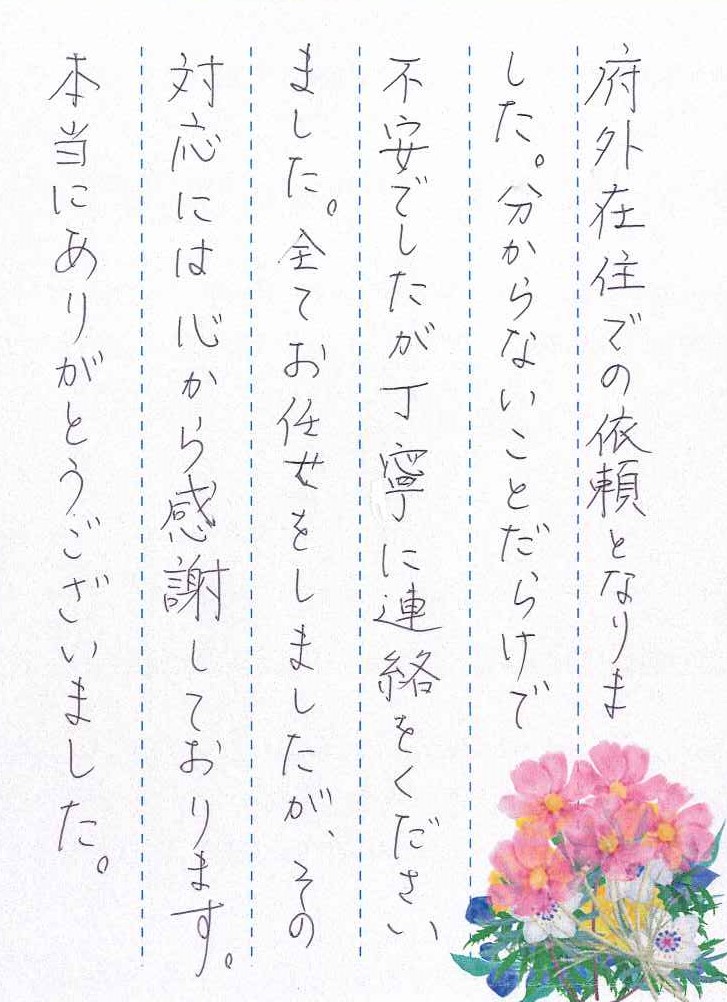 府外在住での依頼となりま
した。分からないことだらけで
不安でしたが丁寧に連絡をください
ました。全てお任せをしましたが、その
対応には心から感謝しております。
本当にありがとうございました。